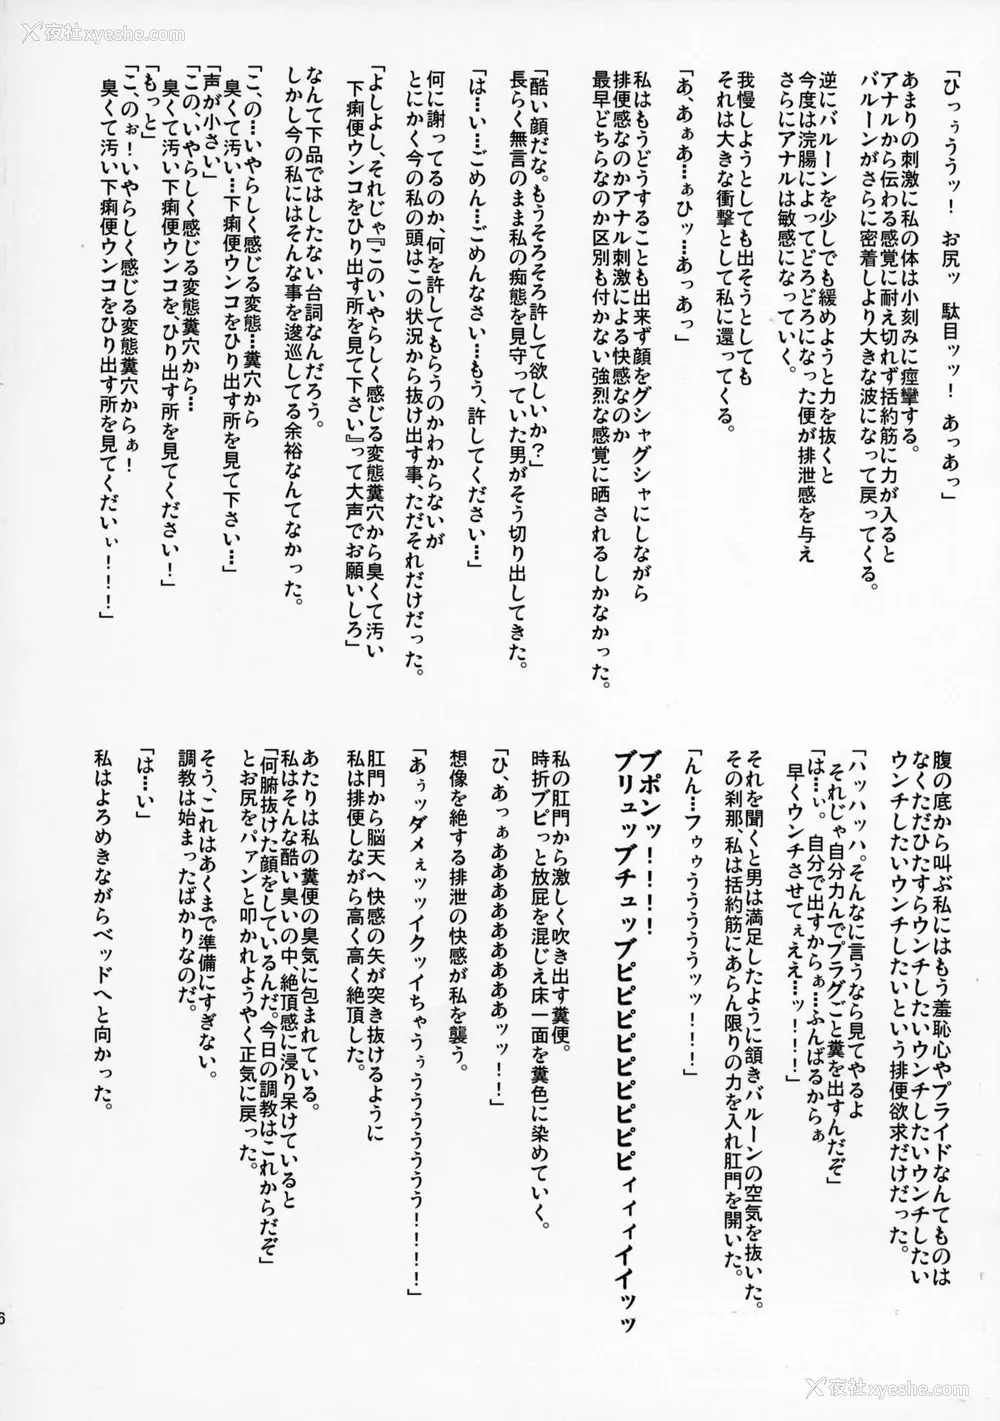 夜社xyeshe.com
「ひっぅううッ！ お尻ッ 駄目ッッ！ あっあっ」
あまりの刺激に私の体は小刻みに痙攣する。
アナルから伝わる感覚に耐え切れず括約筋に力が入ると
バルーンがさらに密着しより大きな波になって戻ってくる。
逆にバルーンを少しでも緩めようと力を抜くと
今度は浣腸によってどろどろになった便が排泄感を与え
さらにアナルは敏感になっていく。
我慢しようとしても出そうとしても
それは大きな衝撃として私に還ってくる。
「あ、あぁあ…ぁひッ…あっあっ」
私はもうどうすることも出来ず顔をグシャグシャにしながら
排便感なのかアナル刺激による快感なのか
最早どちらなのか区別も付かない強烈な感覚に晒されるしかなかった。
「酷い顔だな。もうそろそろ許して欲しいか？」
長らく無言のまま私の痴態を見守っていた男がそう切り出してきた。
「は…い…ごめん…ごめんなさい…もう、許してください…」
何に謝ってるのか、何を許してもらうのかわからないが
とにかく今の私の頭はこの状況から抜け出す事、ただそれだけだった。
「よしよし、それじゃ『このいやらしく感じる変態糞穴から臭くて汚い
下痢便ウンコをひり出す所を見て下さい』って大声でお願いしろ」
なんて下品ではしたない台詞なんだろう。
しかし今の私にはそんな事を逡巡してる余裕なんてなかった。
「こ、の…いやらしく感じる変態…糞穴から
臭くて汚い…下痢便ウンコをひり出す所を見て下さい…」
「声が小さい」
「この、いやらしく感じる変態糞穴から…
臭くて汚い下痢便ウンコを、ひり出す所を見てください！」
「もっと」
「こ、のぉ！いやらしく感じる変態糞穴からぁ！
臭くて汚い下痢便ウンコをひり出す所を見てくだいぃ！！！」
腹の底から叫ぶ私にはもう羞恥心やプライドなんてものは
なくただひたすらウンチしたいウンチしたいウンチしたい
ウンチしたいウンチしたいという排便欲求だけだった。
「ハッハッハ。そんなに言うなら見てやるよ
それじゃ自分力んでプラグごと糞を出すんだぞ」
「は…ぃ。自分で出すからぁ…ふんばるからぁ
早くウンチさせてぇええ…ッ！！！」
それを聞くと男は満足したように頷きバルーンの空気を抜いた。
その刹那、私は括約筋にあらん限りの力を入れ肛門を開いた。
「んん…フゥゥうううううッッ！！！」
ブポンッ！！！！
ブリュッブチュッブピピピピピピピピピィィィイイイッッ
私の肛門から激しく吹き出す糞便。
時折ブピっと放屁を混じえ床一面を糞色に染めていく。
「ひ、あっぁああああああああッッ！！」
想像を絶する排泄の快感が私を襲う。
「あぅッダメぇッッイクッイちゃうぅうううううう！！！！」
肛門から脳天へ快感の矢が突き抜けるように
私は排便しながら高く高く絶頂した。
あたりは私の糞便の臭気に包まれている。
私はそんな酷い臭いの中、絶頂感に浸り呆けていると
「何腑抜けた顔をしているんだ。今日の調教はこれからだぞ」
とお尻をパァンと叩かれようやく正気に戻った。
そう、これはあくまで準備にすぎない。
調教は始まったばかりなのだ。
「は…い」
私はよろめきながらベッドへと向かった。
6
夜社xyeshe.com